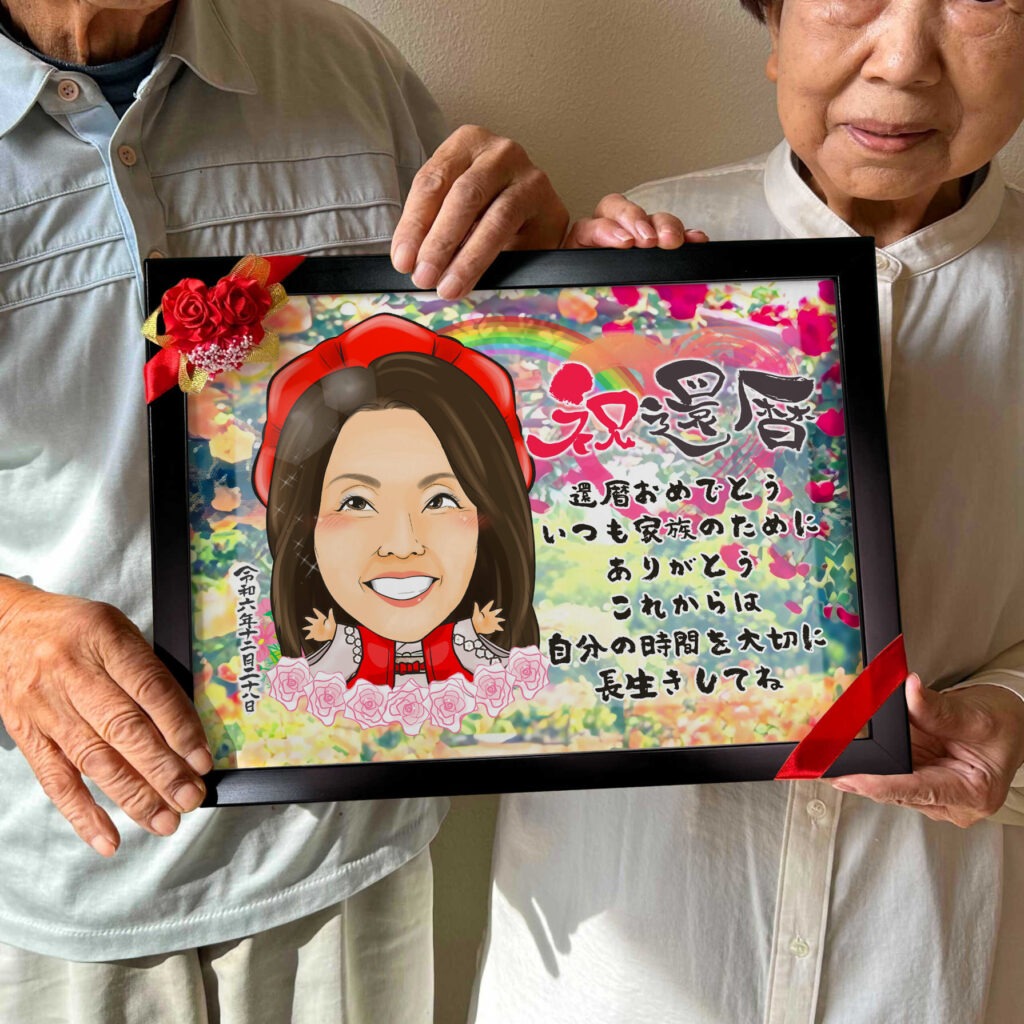 祝還暦
還暦おめでとう
いつも家族のために
ありがとう
これからは
自分の時間を大切に
長生きしてね
令和六年十二月二十八日